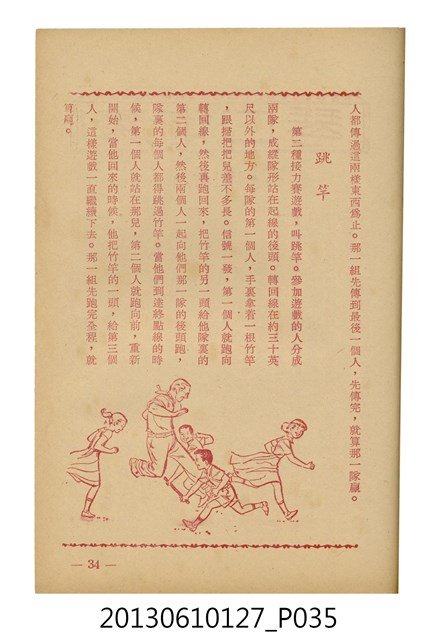 人都傳過這兩樣東西爲止。那一組先傳到最後一個人，先傳完，就算那一隊贏。
跳竿
第二種接力賽遊戲，叫跳竿。參加遊戲的人分成
兩隊，或縱隊形站在起線的後頭。轉回線在約三十英
尺以外的地方。每隊的第一個人，手裏拿着一根竹竿
，跟掃把把兒差不多長。信號一發，第一個人就跑向
轉回線，然後再跑回來，把竹竿的另一頭給他隊裏的
第二個人，然後兩個人一起向他們那一隊的後頭跑，
隊裏的每個人都得跳過竹竿。當他們到達終點線的時
候，第一個人就站在那兒，第二個人就跑向前，重新
開始，當他回來的時候，他把竹竿的一頭，給第三個
人，這樣遊戲一直繼續下去。那一組先跑完全程，就
算贏。
— 34 —
20130610127_P035